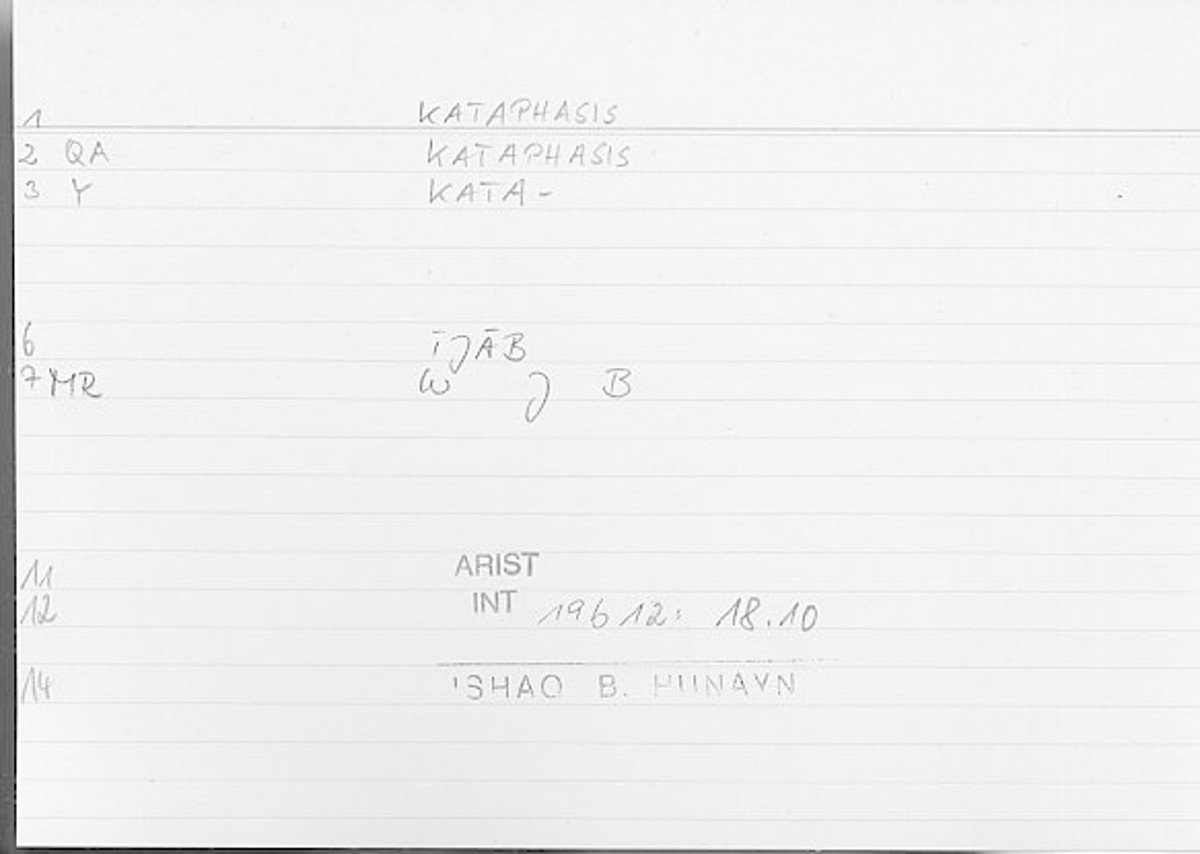 1 KATAPHASIS
2 QA KATAPHASIS
3 Y KATA-
6 ĪJĀB
7 MR W J B
11 ARIST
12 INT 19b12: 18.10
14 ISHAQ B. HUNAYN